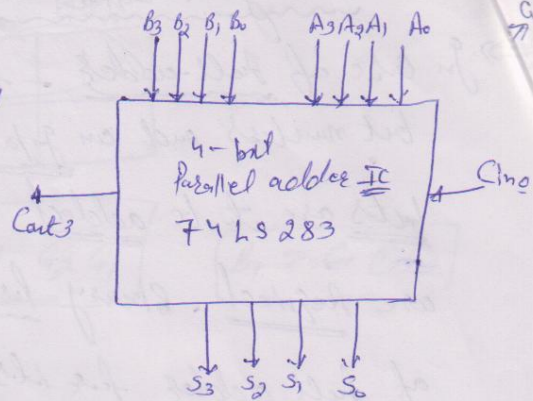 B3 B2 B1 B0 A3 A2 A1 A0
4-bit
Parallel adder IC
74LS283
Cin0
Cout3
S3 S2 S1 S0